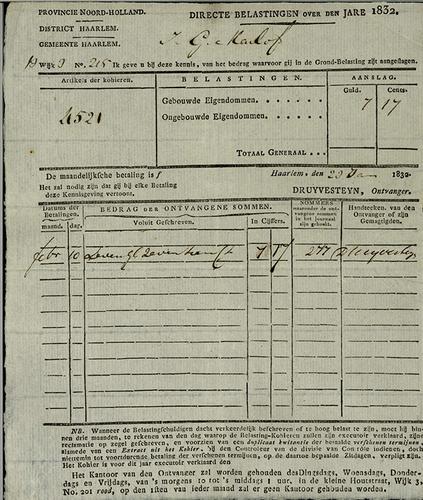 PROVINCIE NOORD-HOLLAND.
DISTRICT HAARLEM.
GEMEENTE HAARLEM.
DIRECTE BELASTINGEN OVER DEN JARE 1832.
J. G.
Wijk 3 No. 215 Ik geve u bij deze kennis, van het bedrag waarvoor gij in de Grond-Belasting zijt aangeslagen.
Artikels der kohieren.
4521
BELASTINGEN.
AANSLAG.
Guld. Cents.
Gebouwde Eigendommen . . . . . . 7 17
Ongebouwde Eigendommen . . . . .
TOTAAL GENERAAL . . .
De maandelijksche betaling is f
Het zal nodig zijn dat gij bij elke Betaling
deze Kennisgeving vertoont.
Haarlem, den 29 Jan 1832
DRUYVESTEYN, Ontvanger.
Datums der Betalingen.
maand. dag.
BEDRAG DER ONTVANGENE SOMMEN.
Voluit Geschreven.
In Cijffers.
NOMMERS
waaronder de ontvangene sommen in het journaal zijn geboekt.
Handteeken. van den Ontvanger of zijn Gemagtigden.
febr 10 Zeven gl zeventien Ct 7 17 277 Druyvesteyn
NB. Wanneer de Belastingschuldigen dacht verkeerdelijk beschreven of te hoog belast te zijn, moet hij binnen
drie maanden, te rekenen van den dag waarop de Belasting-Kohieren zullen zijn executoir verklaard, zijne
reclamatie op zegel geschreven, en voorzien van een duplicaat kwitantie der betaalde verschenen termijnen,
alsmede van een Extract uit het Kohier, bij den Controleur van de divisie van Contrôle indienen, doch
niettemin tot voortdurende betaling der verschenen termijnen, op de daartoe bepaalde Zitdagen, verpligt zijn.
Het Kohier is voor dit jaar executoir verklaard den
Het Kantoor van den Ontvanger zal worden gehouden des Dingsdags, Woensdags, Donderdags
en Vrijdags, van 's morgens 10 tot 's middags 1 uur, in de kleine Houtstraat, Wijk 3,
No. 201 rood, op den 1sten van ieder maand zal er geen Kantoor gehouden worden.